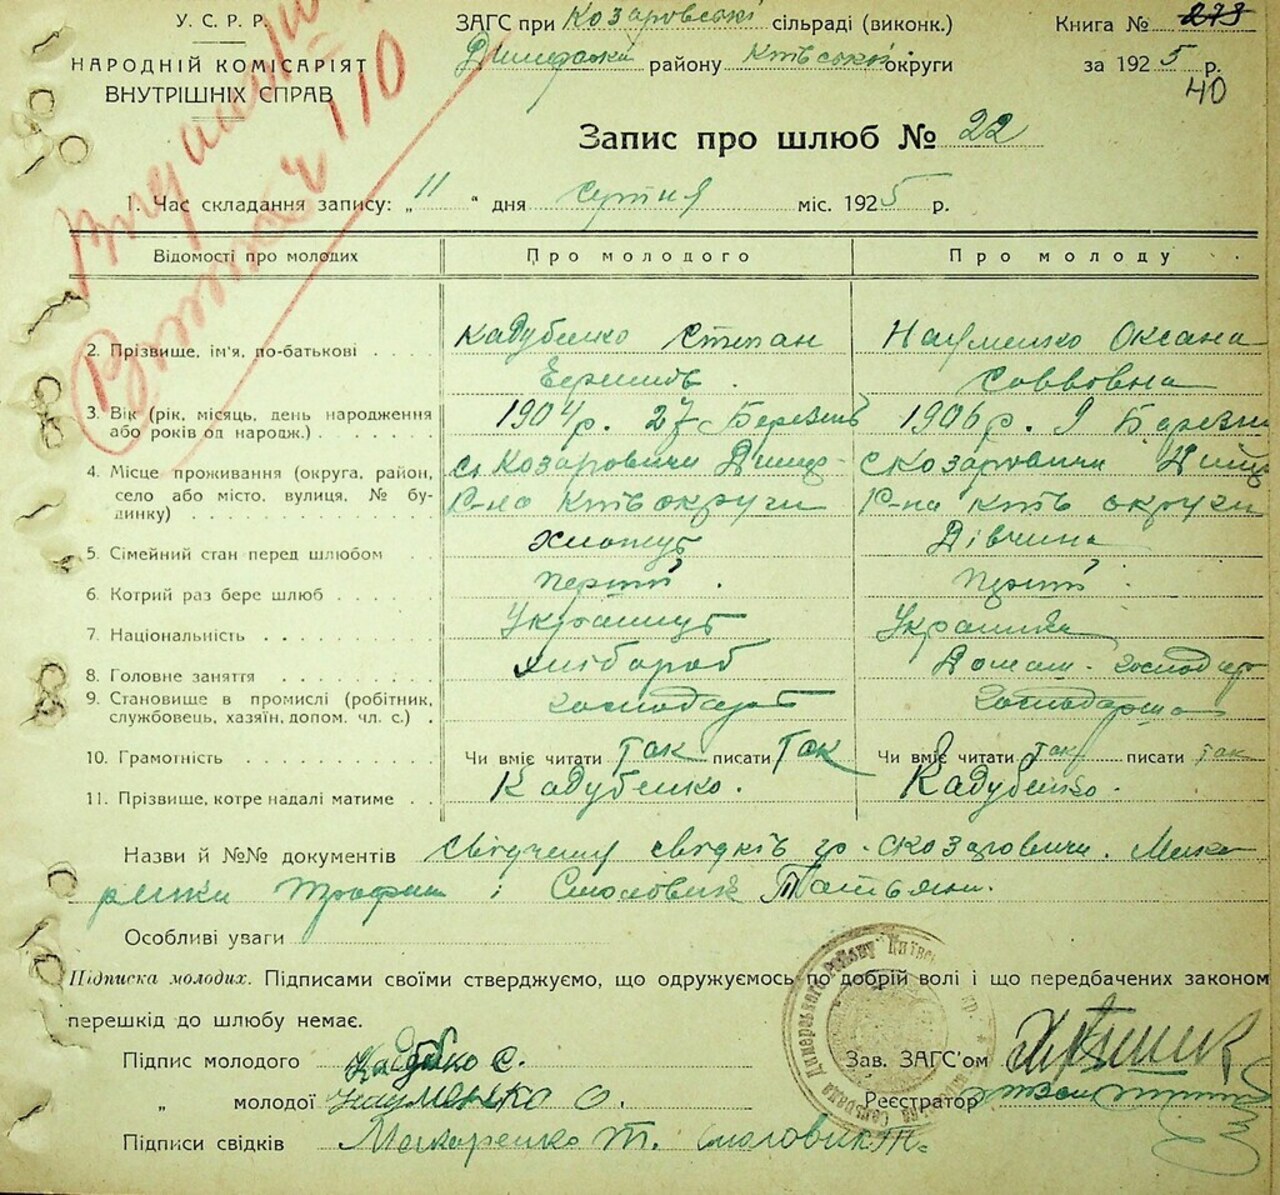 У. С. Р. Р.
НАРОДНІЙ КОМІСАРІЯТ
ВНУТРІШНІХ СПРАВ
ЗАГС при Козаровській сільраді (виконк.)
Димерськ району Київської округи
Книга № 273
за 1925 р.
40
110
Запис про шлюб № 22
1. Час складання запису: „11“ дня серпня міс. 1925 р.
Відомості про молодих Про молодого Про молоду
2. Прізвище, ім'я, по-батькові Кадубенко Степан Науменко Оксана
Саввовна
3. Вік (рік, місяць, день народження 1904 р. 27 Березня 1906 р. 9 Березня
або років од народж.)
4. Місце проживання (округа, район, с. Козаровичи Димер- с Козаровичи Димер
село або місто, вулиця, № бу- р-на Київ округи р-на Київ округи
динку)
5. Сімейний стан перед шлюбом Дівчина
6. Котрий раз бере шлюб перший перший
7. Національність Українець Українка
8. Головне заняття хлібороб Домаш. господар
9. Становище в промислі (робітник, господар господарша
службовець, хазяїн, допом. чл. с.)
10. Грамотність Чи вміє читати так писати так Чи вміє читати так писати так
11. Прізвище, котре надалі матиме Кадубенко. Кадубенко.
Назви й №№ документів свідків гр. с Козаровичи. Мака
ренки і Смоловик Татьяни.
Особливі уваги
Підписка молодих. Підписами своїми стверджуємо, що одружуємось по добрій волі і що передбачених законом
перешкід до шлюбу немає.
Підпис молодого С. Зав. ЗАГС'ом
„ молодої Науменко О. Реєстратор
Підписи свідків Макаренко Т. Смоловик Т.